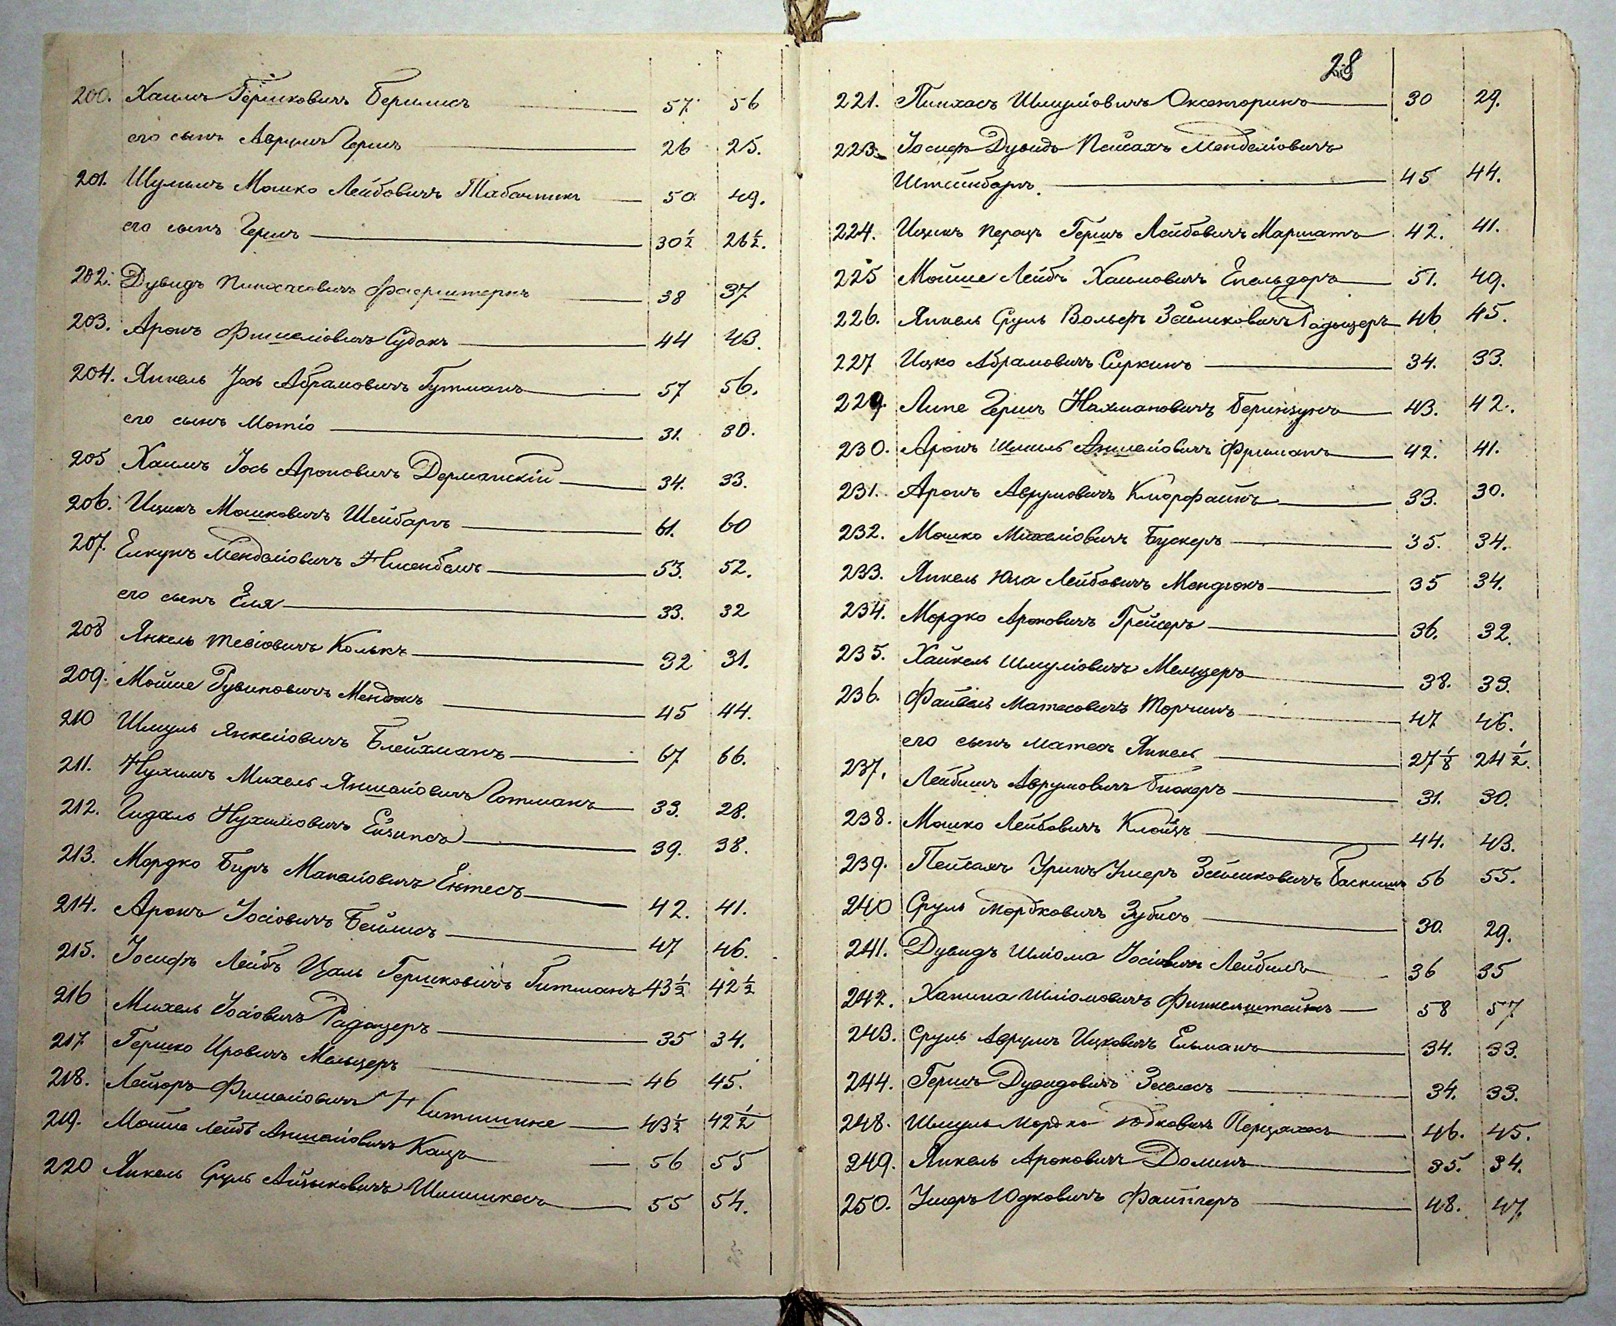 200. Хаимъ Гершковичъ Берлисъ 57 56
его сынъ Аврумъ Гершъ 26 25.
201. Шулимъ Мошко Лейбовичъ Табачникъ 50 49.
его сынъ Гершъ 30½ 26½.
202. Дувидъ Пинхасовичъ Фаерштернъ 38 37
203. Аронъ Фишелiовичъ Судакъ 44 43.
204. Янкель Iось Абрамовичъ Гутманъ 57 56.
его сынъ Мотiо 31. 30.
205 Хаимъ Iось Ароновичъ Дерманскiй 34. 33.
206. Ицикъ Мошковичъ Шейбаръ 61. 60
207. Елкунъ Менделiовичъ Нисенбомъ 53. 52.
его сынъ Еля 33. 32
208 Янкель Тевiовичъ Колькъ 32 31.
209. Мойше Рувиновичъ Мендюкъ 45 44.
210 Шмуль Янкелiовичъ Блейхманъ 67 66.
211. Нухимъ Михель Яншелiовичъ Готманъ 33. 28.
212. Гидаль Нухимовичъ 39. 38.
213. Мордко Беръ Манелiовичъ Ентесъ 42. 41.
214. Аронъ Iосiовичъ Бейлисъ 47 46.
215. Iосифъ Лейбъ Цаль Гершковичъ Гитманъ 43½ 42½
216 Михель Iосiовичъ Радоцеръ 35 34.
217 Гершко Ировичъ Мельцеръ 46 45.
218. Лейзоръ Фишелiовичъ 43½ 42½
219. Мойше Лейбъ Аншелiовичъ Кацъ 56 55
220 Янкель Сруль Айзыковичъ 55 54.
28
221. Пинхасъ Шмулiовичъ Оксенгоринъ 30 29.
223. Iосифъ Дувидъ Пейсахъ Менделiовичъ
Штейнбаръ. 45 44.
224. Ицикъ Перецъ Гершъ Лейбовичъ Маршатъ 42. 41.
225 Мойше Лейбъ Хаимовичъ Епельдоръ 51. 49.
226. Янкель Сруль Вольфъ Зейликовичъ Радоцеръ 46 45.
227 Ицко Абрамовичъ Сиркинъ 34. 33.
229. Липе Гершъ Нахмановичъ Беринзунъ 43. 42.
230. Аронъ Шмиль Аншелiовичъ Фриманъ 42. 41.
231. Аронъ Аврумовичъ Клорфайнъ 33. 30.
232. Мошко Михелiовичъ Бускеръ 35. 34.
233. Янкель Юза Лейбовичъ Мендюкъ 35 34.
234. Мордко Ароновичъ Грейзеръ 36. 32.
235. Хайкель Шмулiовичъ Мельцеръ 38. 33.
236. Файвель Матесовичъ Торчинъ 47 46.
его сынъ Матесъ Янкель 27⅛ 24½.
237. Лейбишъ Аврумовичъ 31. 30.
238. Мошко Лейбовичъ Клойцъ 44. 43.
239. Пейсахъ Уринъ Ушеръ Зейликовичъ Баскинъ 56 55.
240 Сруль Мордковичъ Зубисъ 30. 29.
241. Дувидъ Шлiома Iосiовичъ Лейбель 36 35
242. Ханина Шлiомовичъ Финкельштейнъ 58 57
243. Сруль Аврумъ Ицковичъ Ельманъ 34. 33.
244. Гершъ Дувидовичъ Зеллесъ 34. 33.
248. Шмуль Мордко Юдковичъ 46. 45.
249. Янкель Ароновичъ Долинъ 35. 34.
250. Ушеръ Юдковичъ Файнгеръ 48. 47.